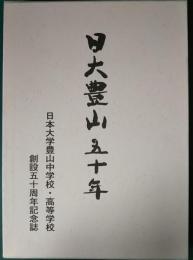 日大豊山五十年
日本大学豊山中学校・高等学校
創設五十周年記念誌